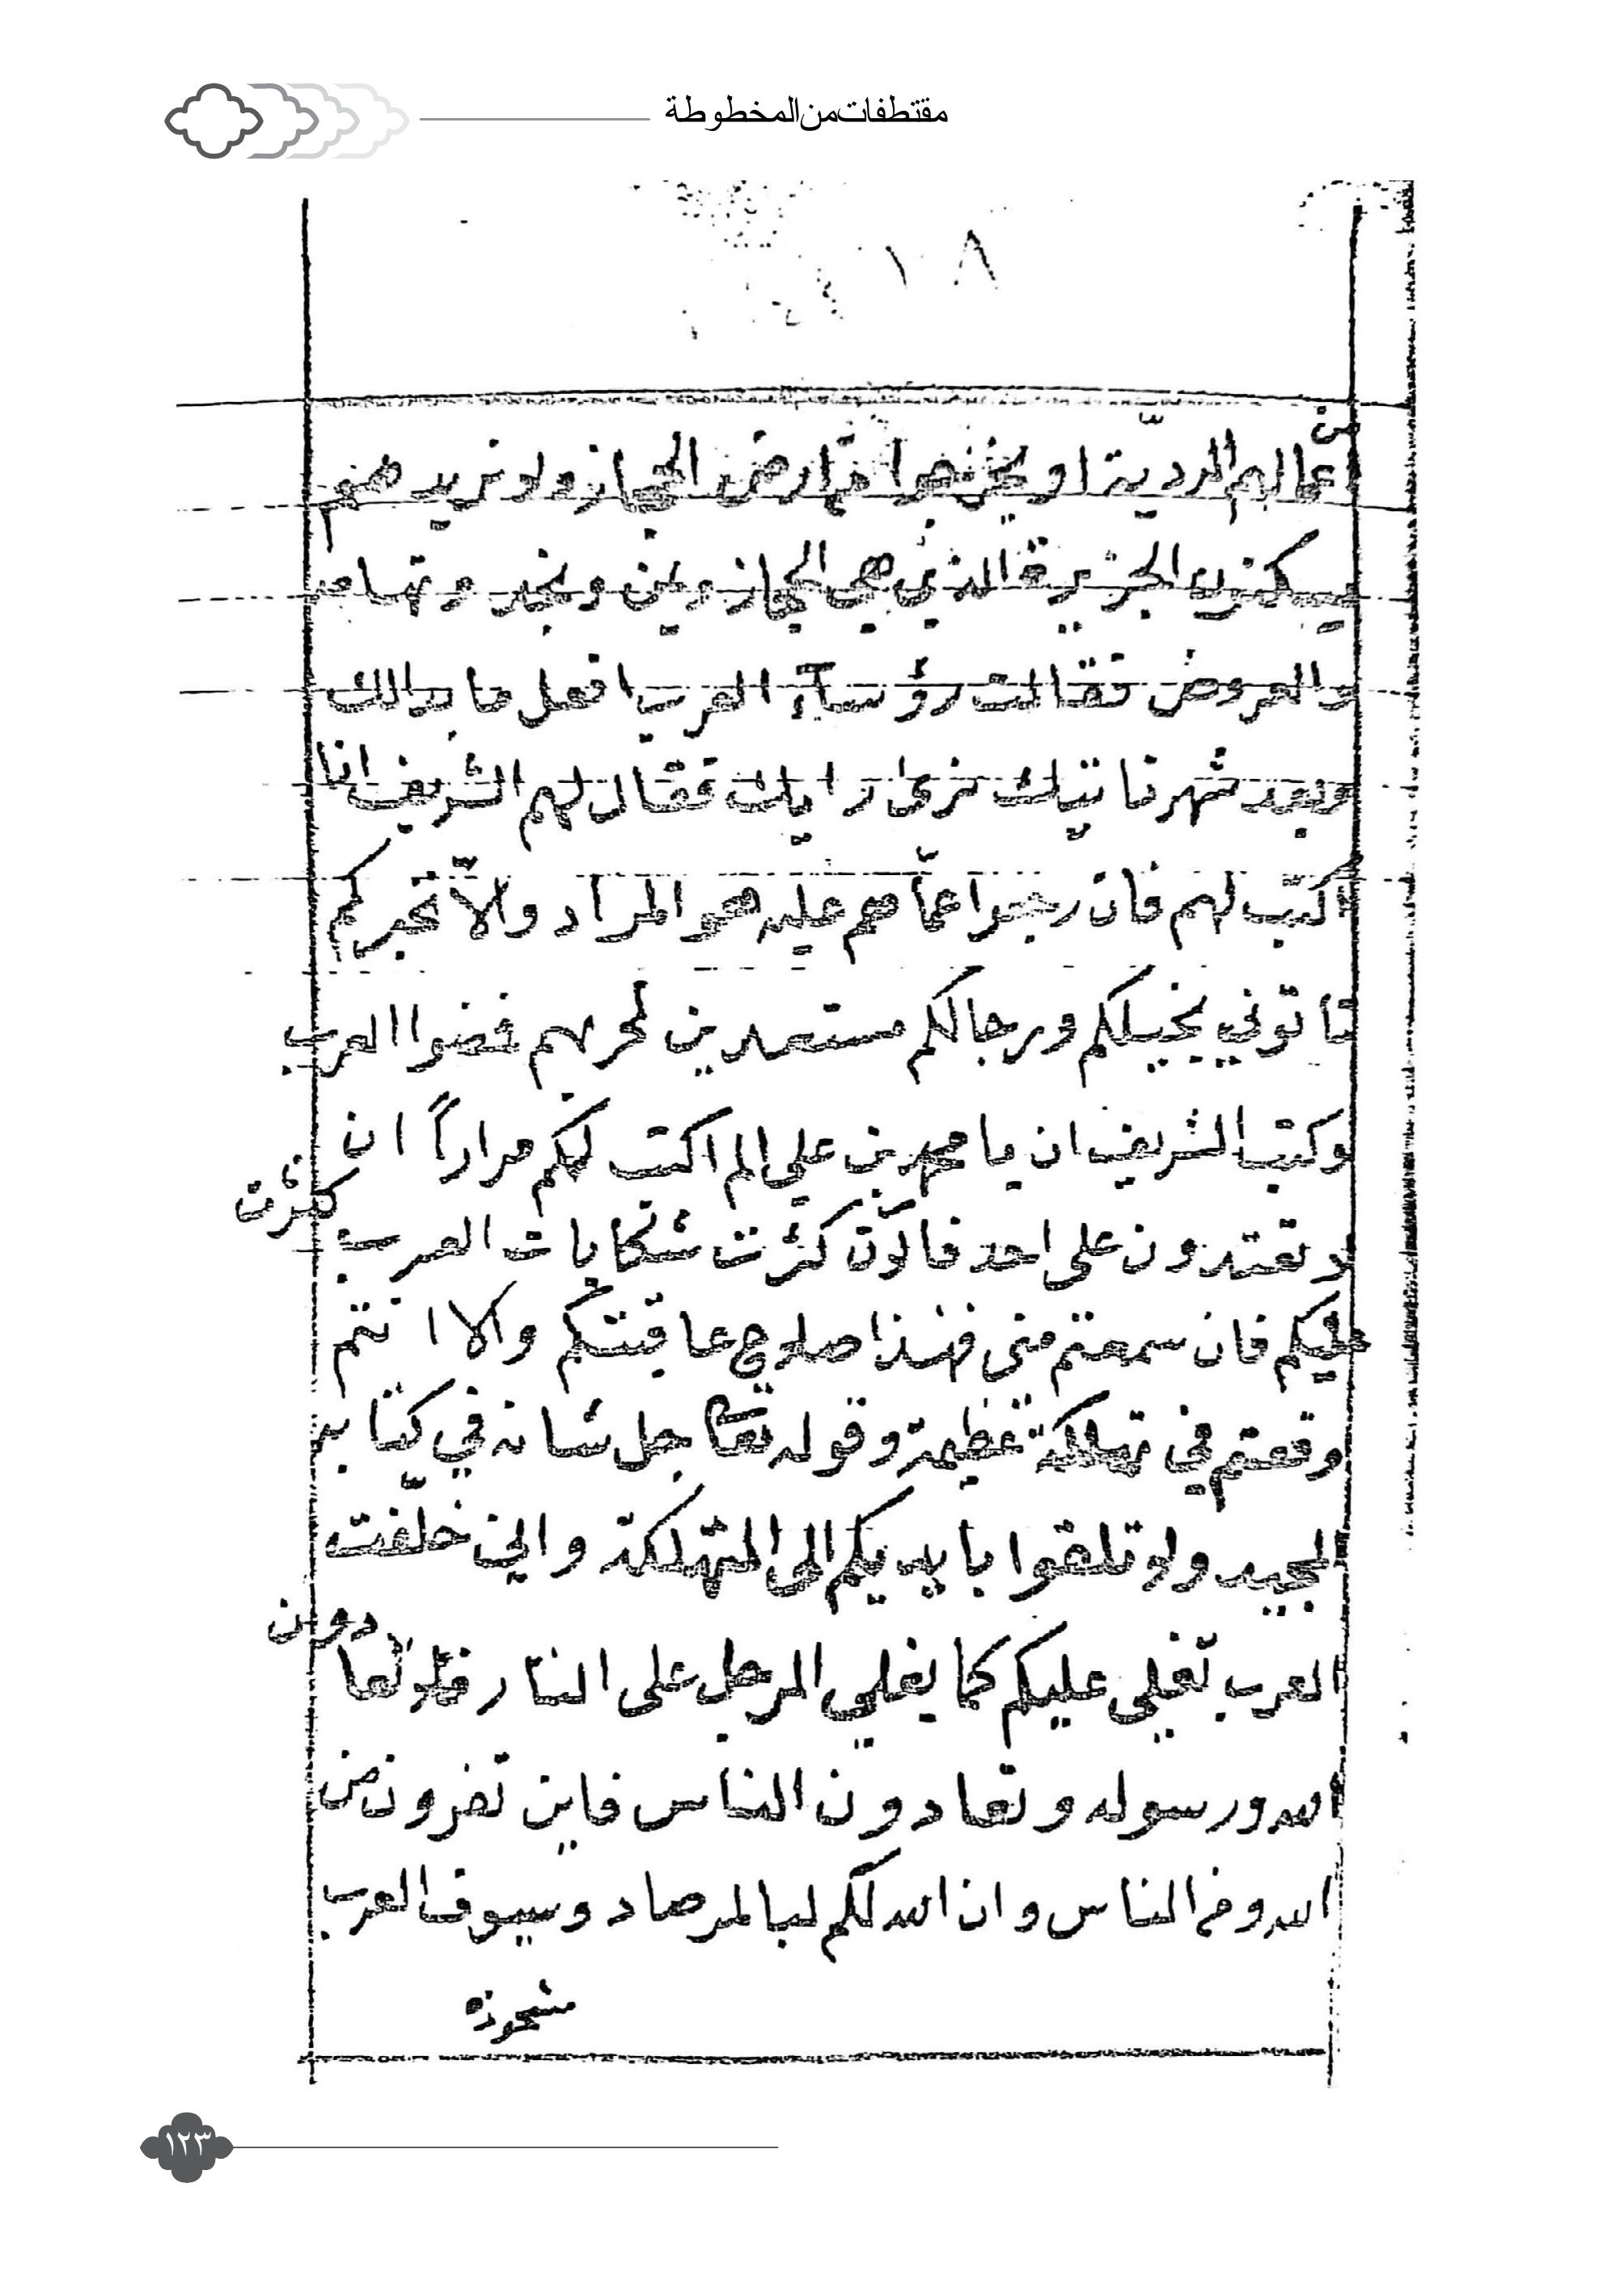 مقتطفات من المخطوطة
١٨
من
اعمالهم الرديّة او يخرجوا من ارض الحجاز ولا نريد هم
يسكنون الجزيرة الذي هي الحجاز ويمن ونجد وتهامه
والعروض فقالت رؤسآء العرب افعل ما بدالك
وبعد شهر ناتيك نرى رايك فقال لهم الشريف انا
اكتب لهم فان رجعوا عمّا هم عليه هو المراد والاّ نخبركم
تاتوني بخيلكم ورجالكم مستعدين لحربهم فمضوا العرب
وكتب الشريف ان يا محمد بن علي الم اكتب لكم مراراً ان
لا تعتدون على احد فالآن كثرت شكايات العرب
كثرت
عليكم فان سمعتم مني فهذا صلاح عاقبتكم والا انتم
وقعتم في تهلكة عظيمة وقوله تعا جل شانه في كتابه
المجيد ولا تلقوا بايديكم الى التهلكة واني خلّفت
العرب تغلي عليكم كما يغلي المرجل على النار فلا تعا
دون
الله ورسوله وتعادون الناس فاين تفرون من
الله ومن الناس وان الله لكم لبالمرصاد وسيوف العرب
مشحوذه
١٢٣